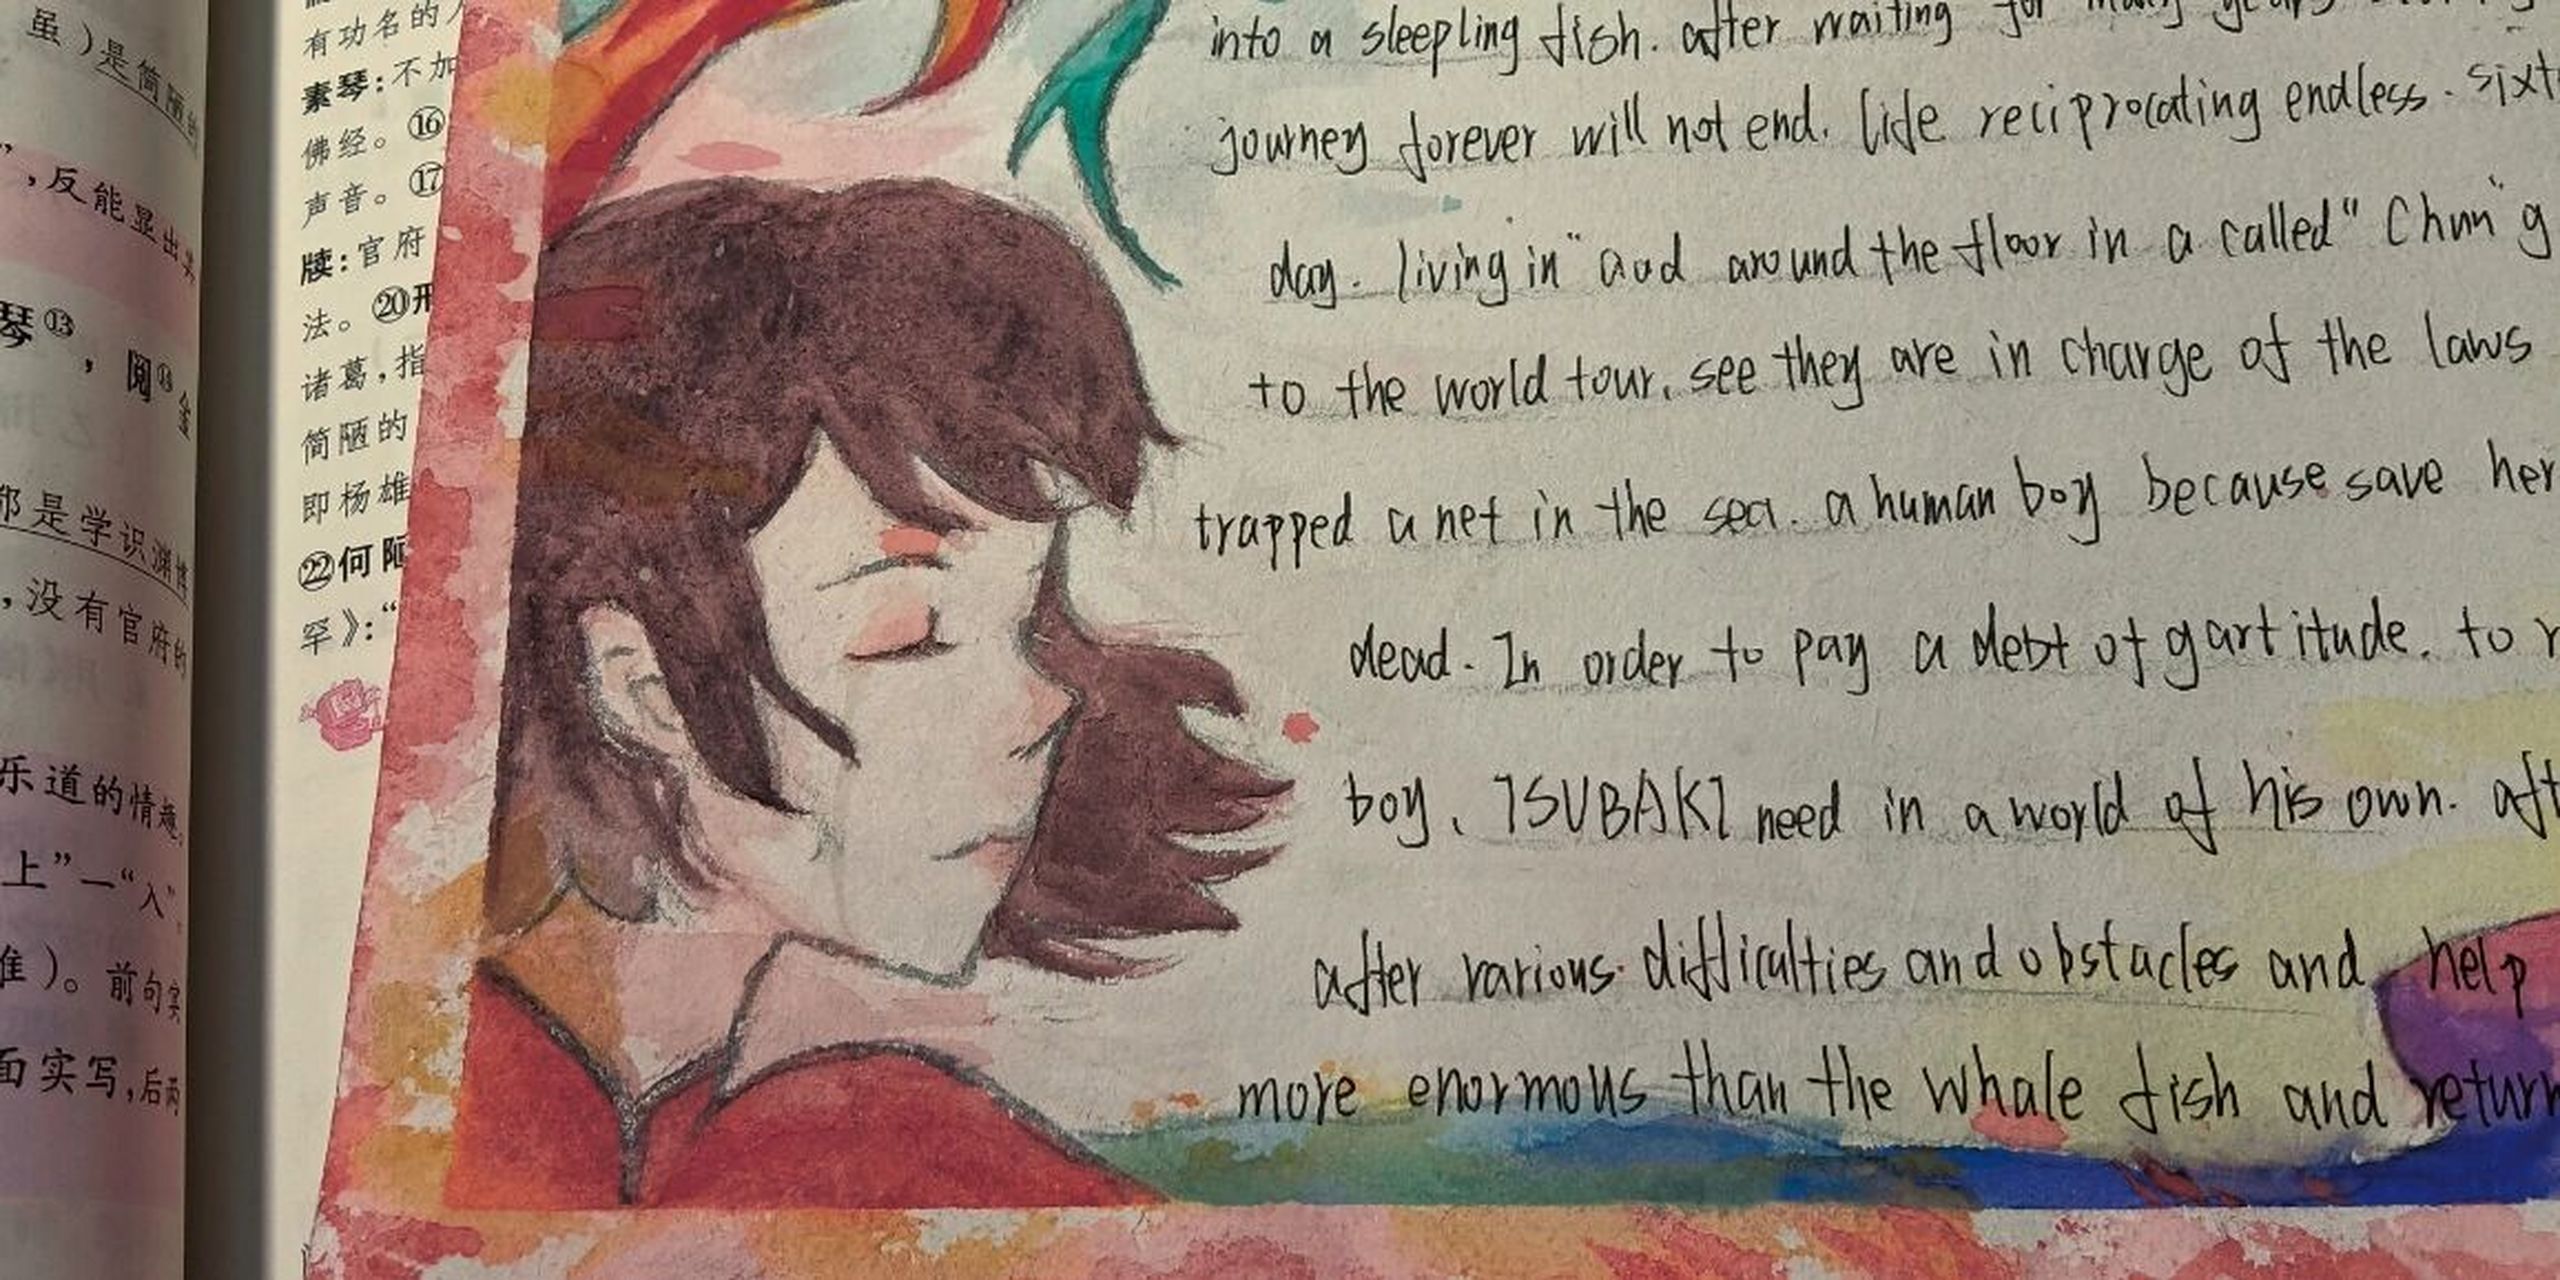 虽）是简陋的
”，反能显出其
琴⑬，阅⑭金
都是学识渊博
，没有官府的
乐道的情趣。
上”一“入”
准）。前句实
面实写，后两
有功名的人
素琴：不加
佛经。⑯
声音。⑰
牍：官府
法。⑳刑
诸葛，指
简陋的
即杨雄
㉒何陋
罕》：“
into a sleepling fish. after waiting for many years
journey forever will not end. life reciprocating endless. sixt
day. living in "aud around the floor in a called "Chun"g
to the world tour. see they are in charge of the laws
trapped a net in the sea. a human boy because save her
dead. In order to pay a debt of gartitude. to r
boy. TSUBAKI need in a world of his own. aft
after various difficulties and obstacles and help
more enormous than the whale fish and return